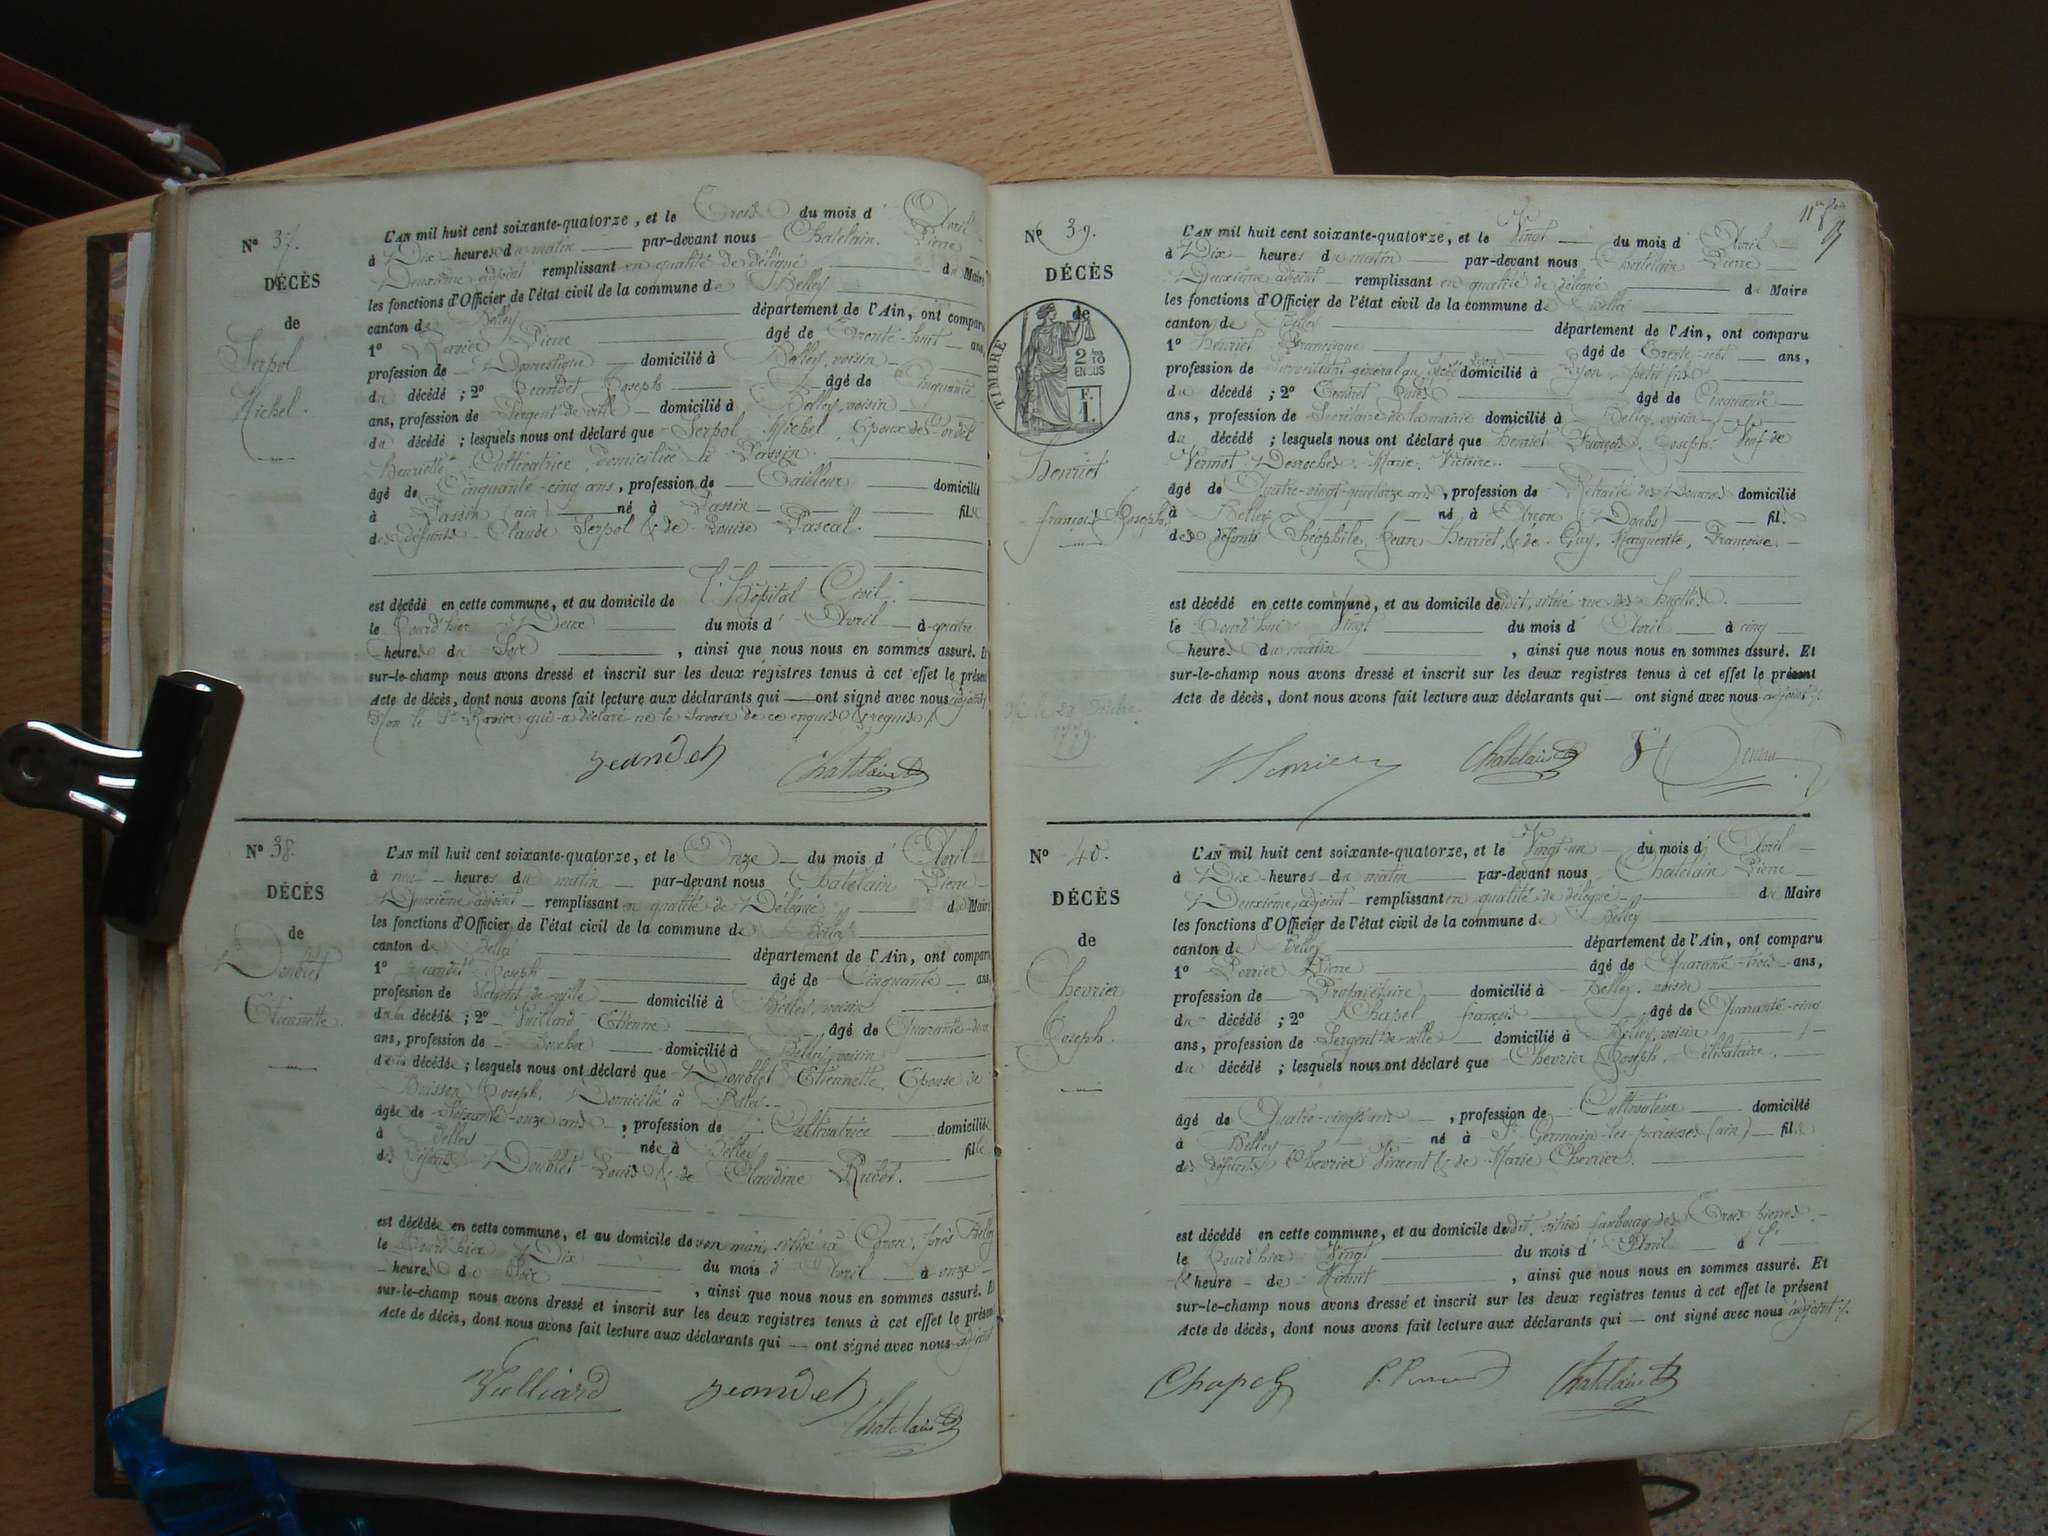 N° 37.
DÉCÈS
de
Serpol
Michel.
L'AN mil huit cent soixante-quatorze, et le Trois du mois d'Avril
à Dix heures du matin par-devant nous Chatelain Pierre
Deuxième adjoint remplissant en qualité de délégué du Maire
les fonctions d'Officier de l'état civil de la commune de Belley
canton de Belley département de l'Ain, ont comparu
1° Ravier Pierre âgé de Trente-huit ans,
profession de Domestique domicilié à Belley, voisin
du décédé ; 2° Jeandet Joseph âgé de Cinquante
ans, profession de Sergent de ville domicilié à Belley, voisin
du décédé ; lesquels nous ont déclaré que Serpol Michel, Epoux de
henriette Cultivatrice, domiciliée à Passin.
âgé de Cinquante-cinq ans, profession de Tailleur domicilié
à Passin (ain) né à Passin fils
des défunts Claude Serpol & de Louise Pascal.
est décédé en cette commune, et au domicile de l'hôpital Civil.
le jourd'hier Deux du mois d'Avril à quatre
heures du Soir, ainsi que nous nous en sommes assuré. Et
sur-le-champ nous avons dressé et inscrit sur les deux registres tenus à cet effet le présent
Acte de décès, dont nous avons fait lecture aux déclarants qui ont signé avec nous adjoint
Non le Sr Ravier qui a déclaré ne le Savoir de ce enquis & requis
Jeandet Chatelain
N° 38.
DÉCÈS
de
Doublet
Etiennette.
L'AN mil huit cent soixante-quatorze, et le Onze du mois d'Avril
à neuf heures du matin par-devant nous Chatelain Pierre
Deuxième adjoint remplissant en qualité de Délégué du Maire
les fonctions d'Officier de l'état civil de la commune de Belley
canton de Belley département de l'Ain, ont comparu
1° Jeandet Joseph âgé de Cinquante ans,
profession de Sergent de ville domicilié à Belley, voisin
de la décédée ; 2° Vuillard Etienne âgé de Quarante-deux
ans, profession de domicilié à Belley, voisin
de la décédée ; lesquels nous ont déclaré que Doublet Etiennette, Epouse de
Buisson Joseph, Domiciliée à Belley.
âgée de Soixante-onze ans, profession de Cultivatrice domiciliée
à Belley née à Belley fille
des défunts Doublet Louis & de Claudine
est décédée en cette commune, et au domicile de son mari, situé à Coron, près Belley
le jourd'hier Dix du mois d'Avril à onze
heures du Soir, ainsi que nous nous en sommes assuré. Et
sur-le-champ nous avons dressé et inscrit sur les deux registres tenus à cet effet le présent
Acte de décès, dont nous avons fait lecture aux déclarants qui ont signé avec nous adjoint
Vulliard Jeandet
Chatelain
N° 39.
DÉCÈS
de
TIMBRE
2/10 EN SUS
F. 1.
henriet
françois Joseph
L'AN mil huit cent soixante-quatorze, et le Vingt du mois d'Avril
à Dix heures du matin par-devant nous Chatelain Pierre
Deuxième adjoint remplissant en qualité de délégué du Maire
les fonctions d'Officier de l'état civil de la commune de Belley
canton de Belley département de l'Ain, ont comparu
1° henriet Francisque âgé de Trente-sept ans,
profession de Surveillant général au lycée domicilié à Lyon, petit fils
du décédé ; 2° âgé de Cinquante
ans, profession de Secrétaire de la mairie domicilié à Belley, voisin
du décédé ; lesquels nous ont déclaré que henriet François, Joseph Veuf de
Vermot Desroches, Marie, Victoire.
âgé de Quatre-vingt-quatorze ans, profession de Retraité des Douanes domicilié
à Belley né à Arcon (Doubs) fils
des défunts Théophile Jean henriet, & de Guy, Marguerite, Françoise.
est décédé en cette commune, et au domicile dudit, situé rue des
le jourd'hui Vingt du mois d'Avril à cinq
heures du matin, ainsi que nous nous en sommes assuré. Et
sur-le-champ nous avons dressé et inscrit sur les deux registres tenus à cet effet le présent
Acte de décès, dont nous avons fait lecture aux déclarants qui ont signé avec nous adjoint
1779
Henriet Chatelain
N° 40.
DÉCÈS
de
Chevrier
Joseph.
L'AN mil huit cent soixante-quatorze, et le Vingt-un du mois d'Avril
à Dix heures du matin par-devant nous Chatelain Pierre
Deuxième adjoint remplissant en qualité de délégué du Maire
les fonctions d'Officier de l'état civil de la commune de Belley
canton de Belley département de l'Ain, ont comparu
1° Perrier Pierre âgé de Quarante-trois ans,
profession de Propriétaire domicilié à Belley, voisin
du décédé ; 2° Chapel françois âgé de Quarante-cinq
ans, profession de Sergent de ville domicilié à Belley, voisin
du décédé ; lesquels nous ont déclaré que Chevrier Joseph, Célibataire.
âgé de Quatre-vingts ans, profession de Cultivateur domicilié
à Belley né à St Germain-les-paroisses (ain) fils
des défunts Chevrier Vincent & de Marie Chevrier.
est décédé en cette commune, et au domicile dudit, situé faubourg des Trois pierres
le jourd'hier Vingt du mois d'Avril à l'
heure de Minuit, ainsi que nous nous en sommes assuré. Et
sur-le-champ nous avons dressé et inscrit sur les deux registres tenus à cet effet le présent
Acte de décès, dont nous avons fait lecture aux déclarants qui ont signé avec nous adjoint
Chapel Chatelain